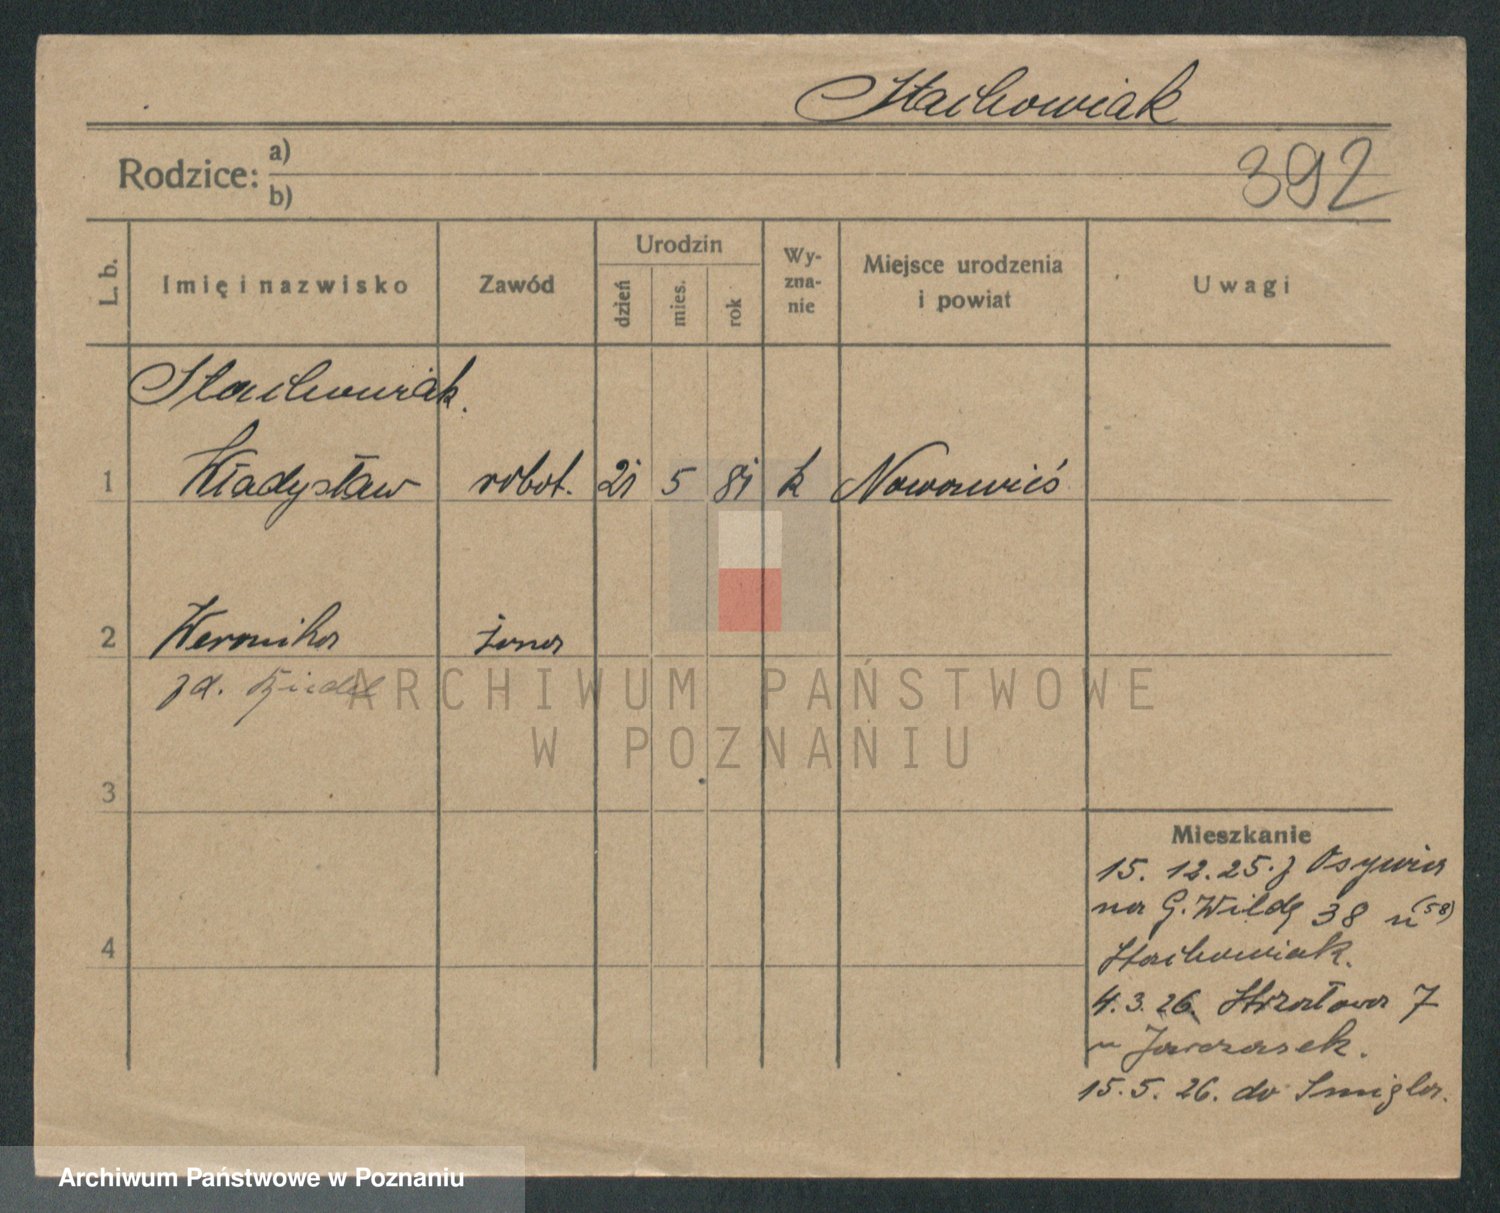 Stachowiak
392
Rodzice: a)
b)
L. b.
Imię i nazwisko
Zawód
Urodzin
dzień
mies.
rok
Wy-
zna-
nie
Miejsce urodzenia
i powiat
Uwagi
Stachowiak.
1 Władysław robot. 21 5 81 k Nowawieś
2 Weronika żona
zd.
3
Mieszkanie
15. 12. 25. z
na G. Wildę 38 u (58)
4
Stachowiak.
4. 3. 26. Strzałowa 7
u
15. 5. 26. do Śmigla.
ARCHIWUM PAŃSTWOWE
W POZNANIU
Archiwum Państwowe w Poznaniu